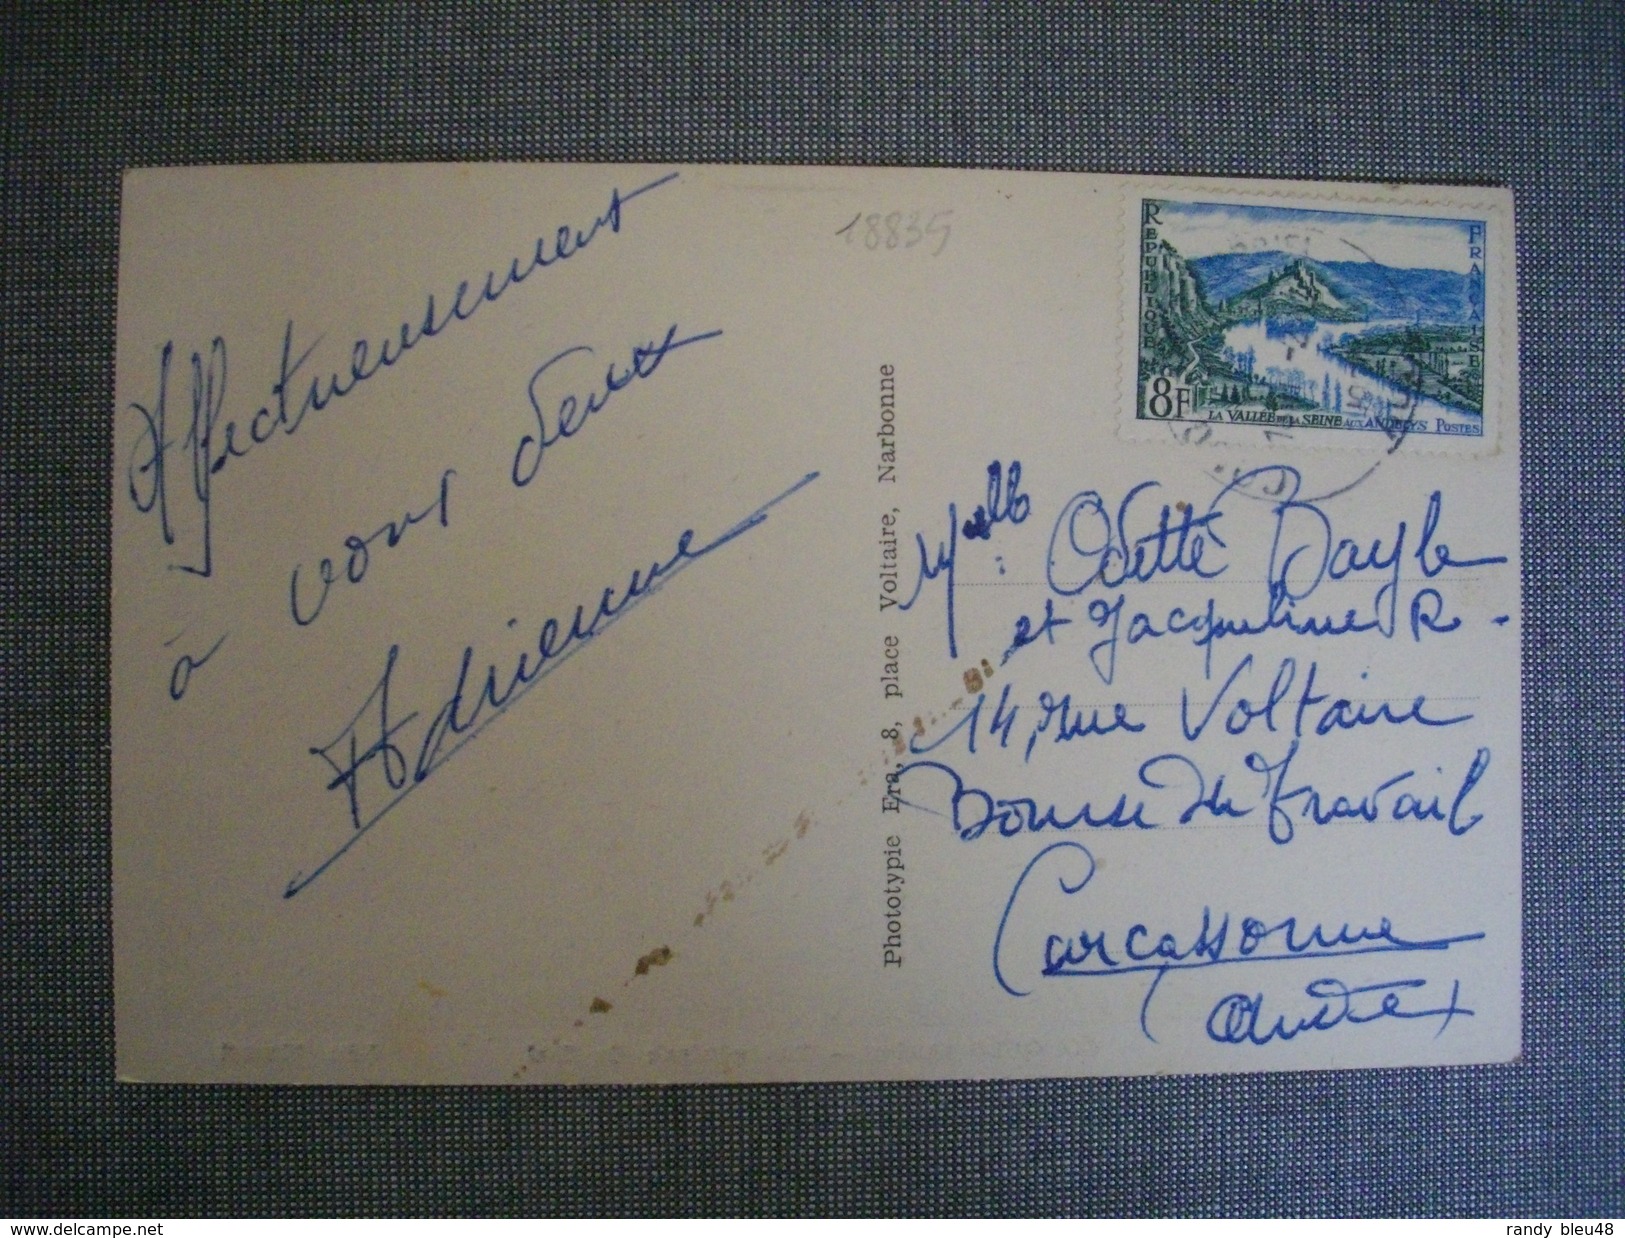 Affectueusement
à vous deux
Adrienne
18835
Phototypie Era, 8, place Voltaire, Narbonne
REPUBLIQUE
FRANÇAISE
8F
LA VALLÉE DE LA SEINE AUX ANDELYS POSTES
Melle: Odette Bayle
et Jacqueline R.
14, rue Voltaire
Bourse du Travail
Carcassonne
Aude
www.delcampe.net
randy_bleu48